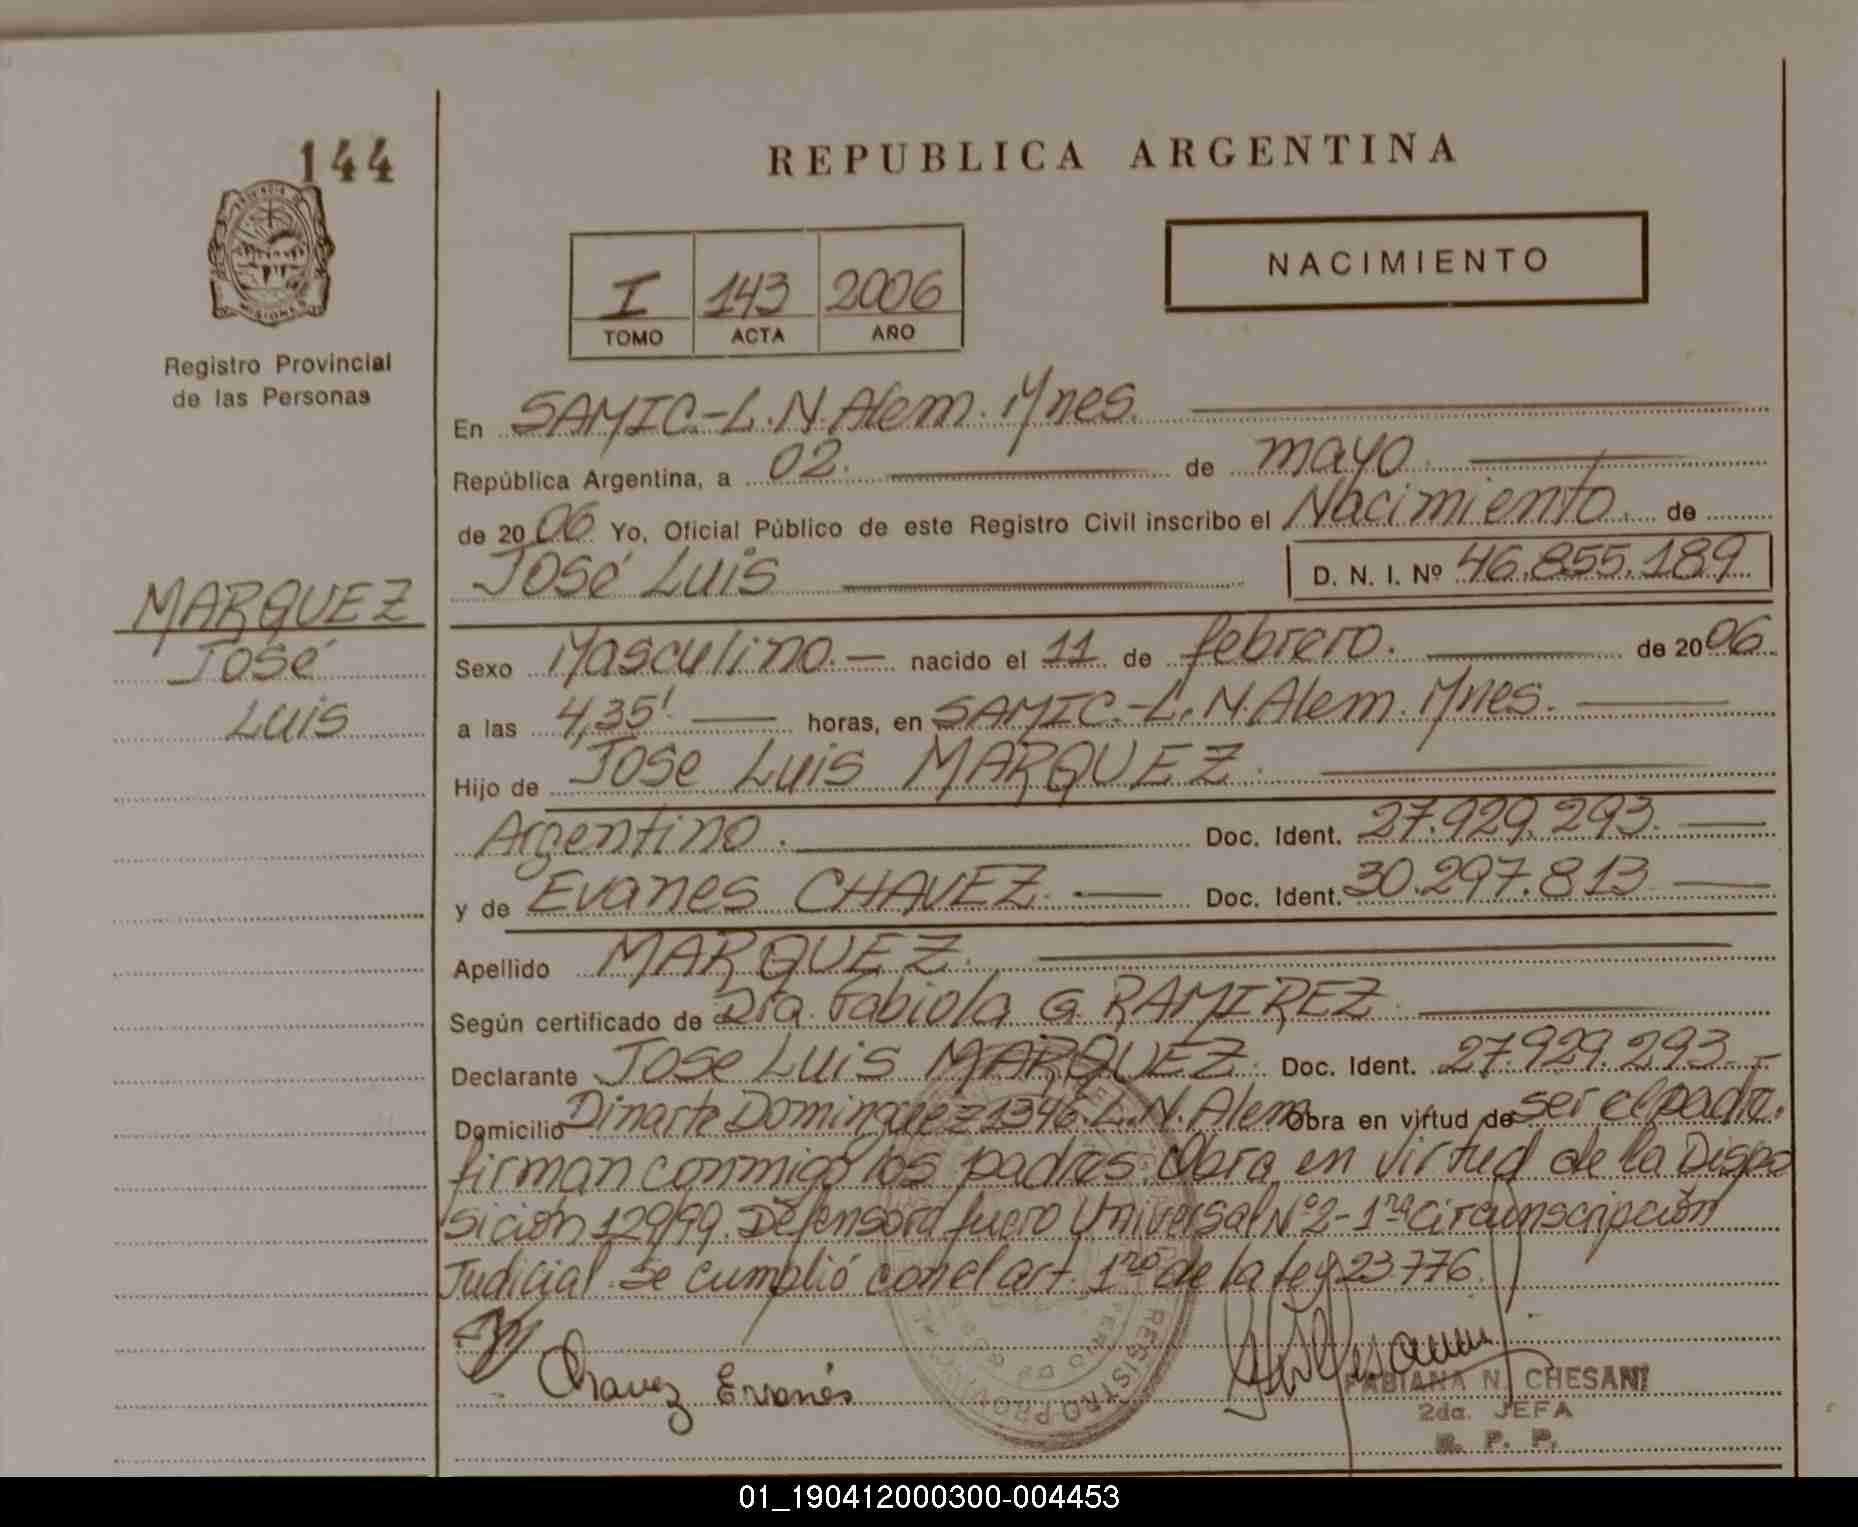 144
REPUBLICA ARGENTINA
PROVINCIA DE
MISIONES
Registro Provincial
de las Personas
I 143 2006
TOMO ACTA AÑO
NACIMIENTO
En SAMIC.-L.N.Alem. Mnes.
República Argentina, a 02. de mayo.
de 2006 Yo, Oficial Público de este Registro Civil inscribo el Nacimiento. de
José Luis D. N. I. Nº 46.855.189.
MARQUEZ
José
Luis
Sexo Masculino.— nacido el 11 de febrero. de 2006.
a las 4,35'. horas, en SAMIC.-L.N.Alem. Mnes.
Hijo de Jose Luis MARQUEZ.
Argentino. Doc. Ident. 27.929.293.
y de Evanes CHAVEZ. Doc. Ident. 30.297.813
Apellido MARQUEZ.
Según certificado de Dra. Fabiola G. RAMIREZ.
Declarante Jose Luis MARQUEZ. Doc. Ident. 27.929.293.-
Domicilio Dinarte Dominguez 1346. L.N. Alem Obra en virtud de ser el padre.
firman conmigo los padres. Obra en virtud de la Dispo
sición 129/99. Defensora fuero Universal Nº2-1ra Circunscripción
Judicial. Se cumplió con el art. 1ro de la ley 23.776.
Chavez Evanés
FABIANA N. CHESANI
2da. JEFA
R. P. P.
REGISTRO PROVINCIAL
01_190412000300-004453